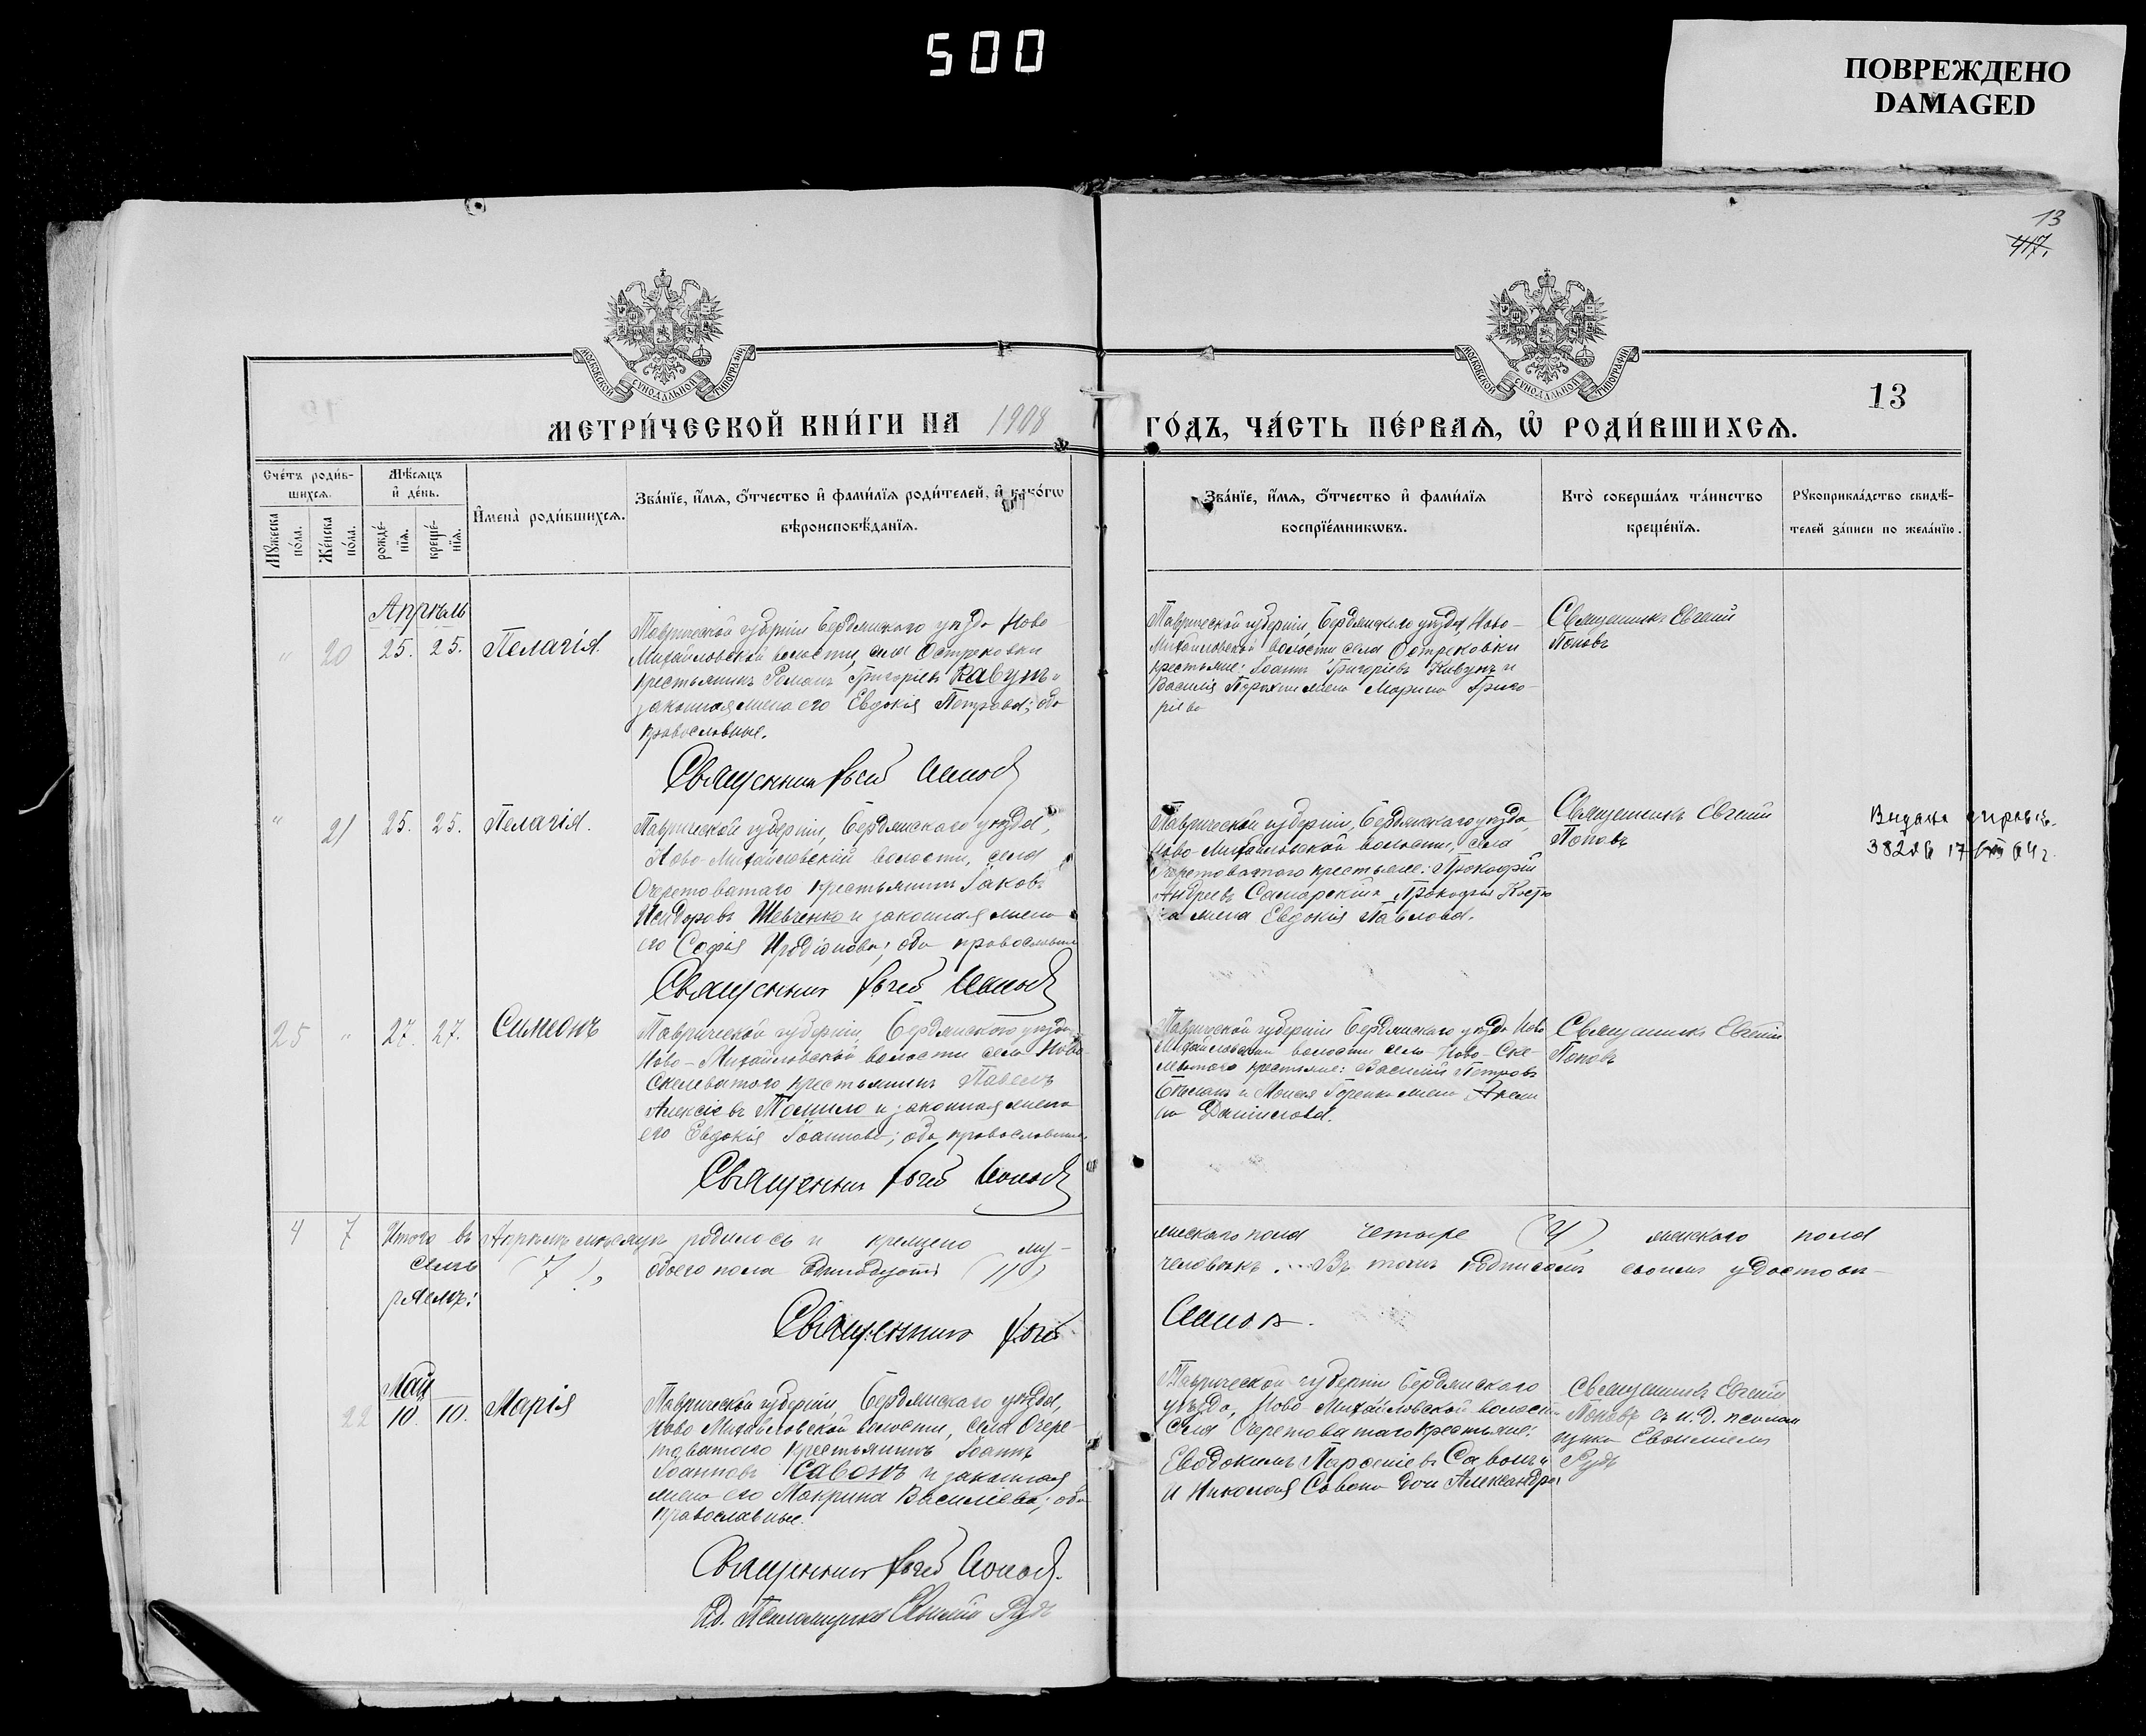 500
ПОВРЕЖДЕНО
DAMAGED
13
417.
МОСКОВСКОЙ СУНОДАЛЬНОЙ ТИПОГРАФІИ
МОСКОВСКОЙ СУНОДАЛЬНОЙ ТИПОГРАФІИ
13
МЕТРИ́ЧЕСКОЙ КНИ́ГИ НА 1908 ГО́ДЪ, ЧА́СТЬ ПЕ́РВАѦ, Ѡ҆ РОДИ́ВШИХСѦ.
Сче́тъ роди́в-
шихсѧ.
Мꙋ́жеска по́ла.
Же́нска по́ла.
Мѣ́сѧцъ
и҆ де́нь.
рожде́-
нїѧ.
креще́-
нїѧ.
И҆мена̀ роди́вшихсѧ.
Зва́нїе, и҆́мѧ, ѻ҆́тчество и҆ фами́лїѧ роди́телей, и҆ како́гѡ
вѣроисповѣ́данїѧ.
Зва́нїе, и҆́мѧ, ѻ҆́тчество и҆ фами́лїѧ
воспрїе́мникѡвъ.
Кто̀ соверша́лъ та́инство
креще́нїѧ.
Рꙋкоприкла́дство свидѣ́-
телей за́писи по жела́нїю.
Апрѣль
" 20 25. 25. Пелагія.
Таврической губерніи Бердянскаго уѣзда Ново-
Михайловской волости, села Остриковки
крестьянинъ Романъ Григорьевъ Кавунъ и
законная жена его Евдокія Петрова; оба
православные.
Священникъ Попов
Таврической губерніи, Бердянскаго уѣзда, Ново-
Михайловской волости села Остриковки
крестьяне: Іоаннъ Григоріевъ Кавунъ и
Василія жена Марина Григо-
ріева
Священникъ Евгеній
Поповъ
" 21 25. 25. Пелагія.
Таврической губерніи, Бердянскаго уѣзда,
Ново-Михайловской волости, села
Очеретоватаго крестьянинъ Іаковъ
Исидоровъ Шевченко и законная жена
его Софія Иродіонова; оба православные
Священникъ Попов
Таврической губерніи, Бердянскаго уѣзда,
Ново-Михайловской волости, села
Очеретоватаго крестьяне: Прокофій
Андреевъ Самарскій и Прокофія
жена Евдокія Павлова.
Священникъ Евгеній
Поповъ
25 " 27. 27. Симеонъ
Таврической губерніи, Бердянскаго уѣзда,
Ново-Михайловской волости села Ново-
Скелеватого крестьянинъ Павелъ
Алексіевъ Томило и законная жена
его Евдокія Іоаннова; оба православные.
Священникъ Попов
Таврической губерніи Бердянскаго уѣзда Ново
Михайловской волости села Ново-Ске-
леватого крестьяне: Василій Петровъ
и Моисея Горенко жена
Даниилова.
Священникъ Евгеній
Поповъ
4 7 Итого въ Апрѣлѣ мѣсяцѣ родилось и крещено му-
жескаго пола четыре (4) женскаго пола
семь (7), обоего пола одиннадцать (11)
человѣкъ. Въ томъ подписомъ своимъ удостовѣ-
ряемъ:
Священникъ
Попов.
Май
22 10. 10. Марія
Таврической губерніи, Бердянскаго уѣзда,
Ново Михайловской волости, села Очере-
товатого крестьянинъ Іоаннъ
Іоанновъ Савонъ и законная
жена его Макрина Василіева; оба
православные.
Священникъ Попов.
И.д. Псаломщика Рудь
Таврической губерніи Бердянскаго
уѣзда, Ново-Михайловской волости
села Очеретоватаго крестьяне:
Евдокимъ Савонъ
и Николая Савона дочь Александра
Священникъ Евгеній
Поповъ съ и.д. псалом
щика
Рудь